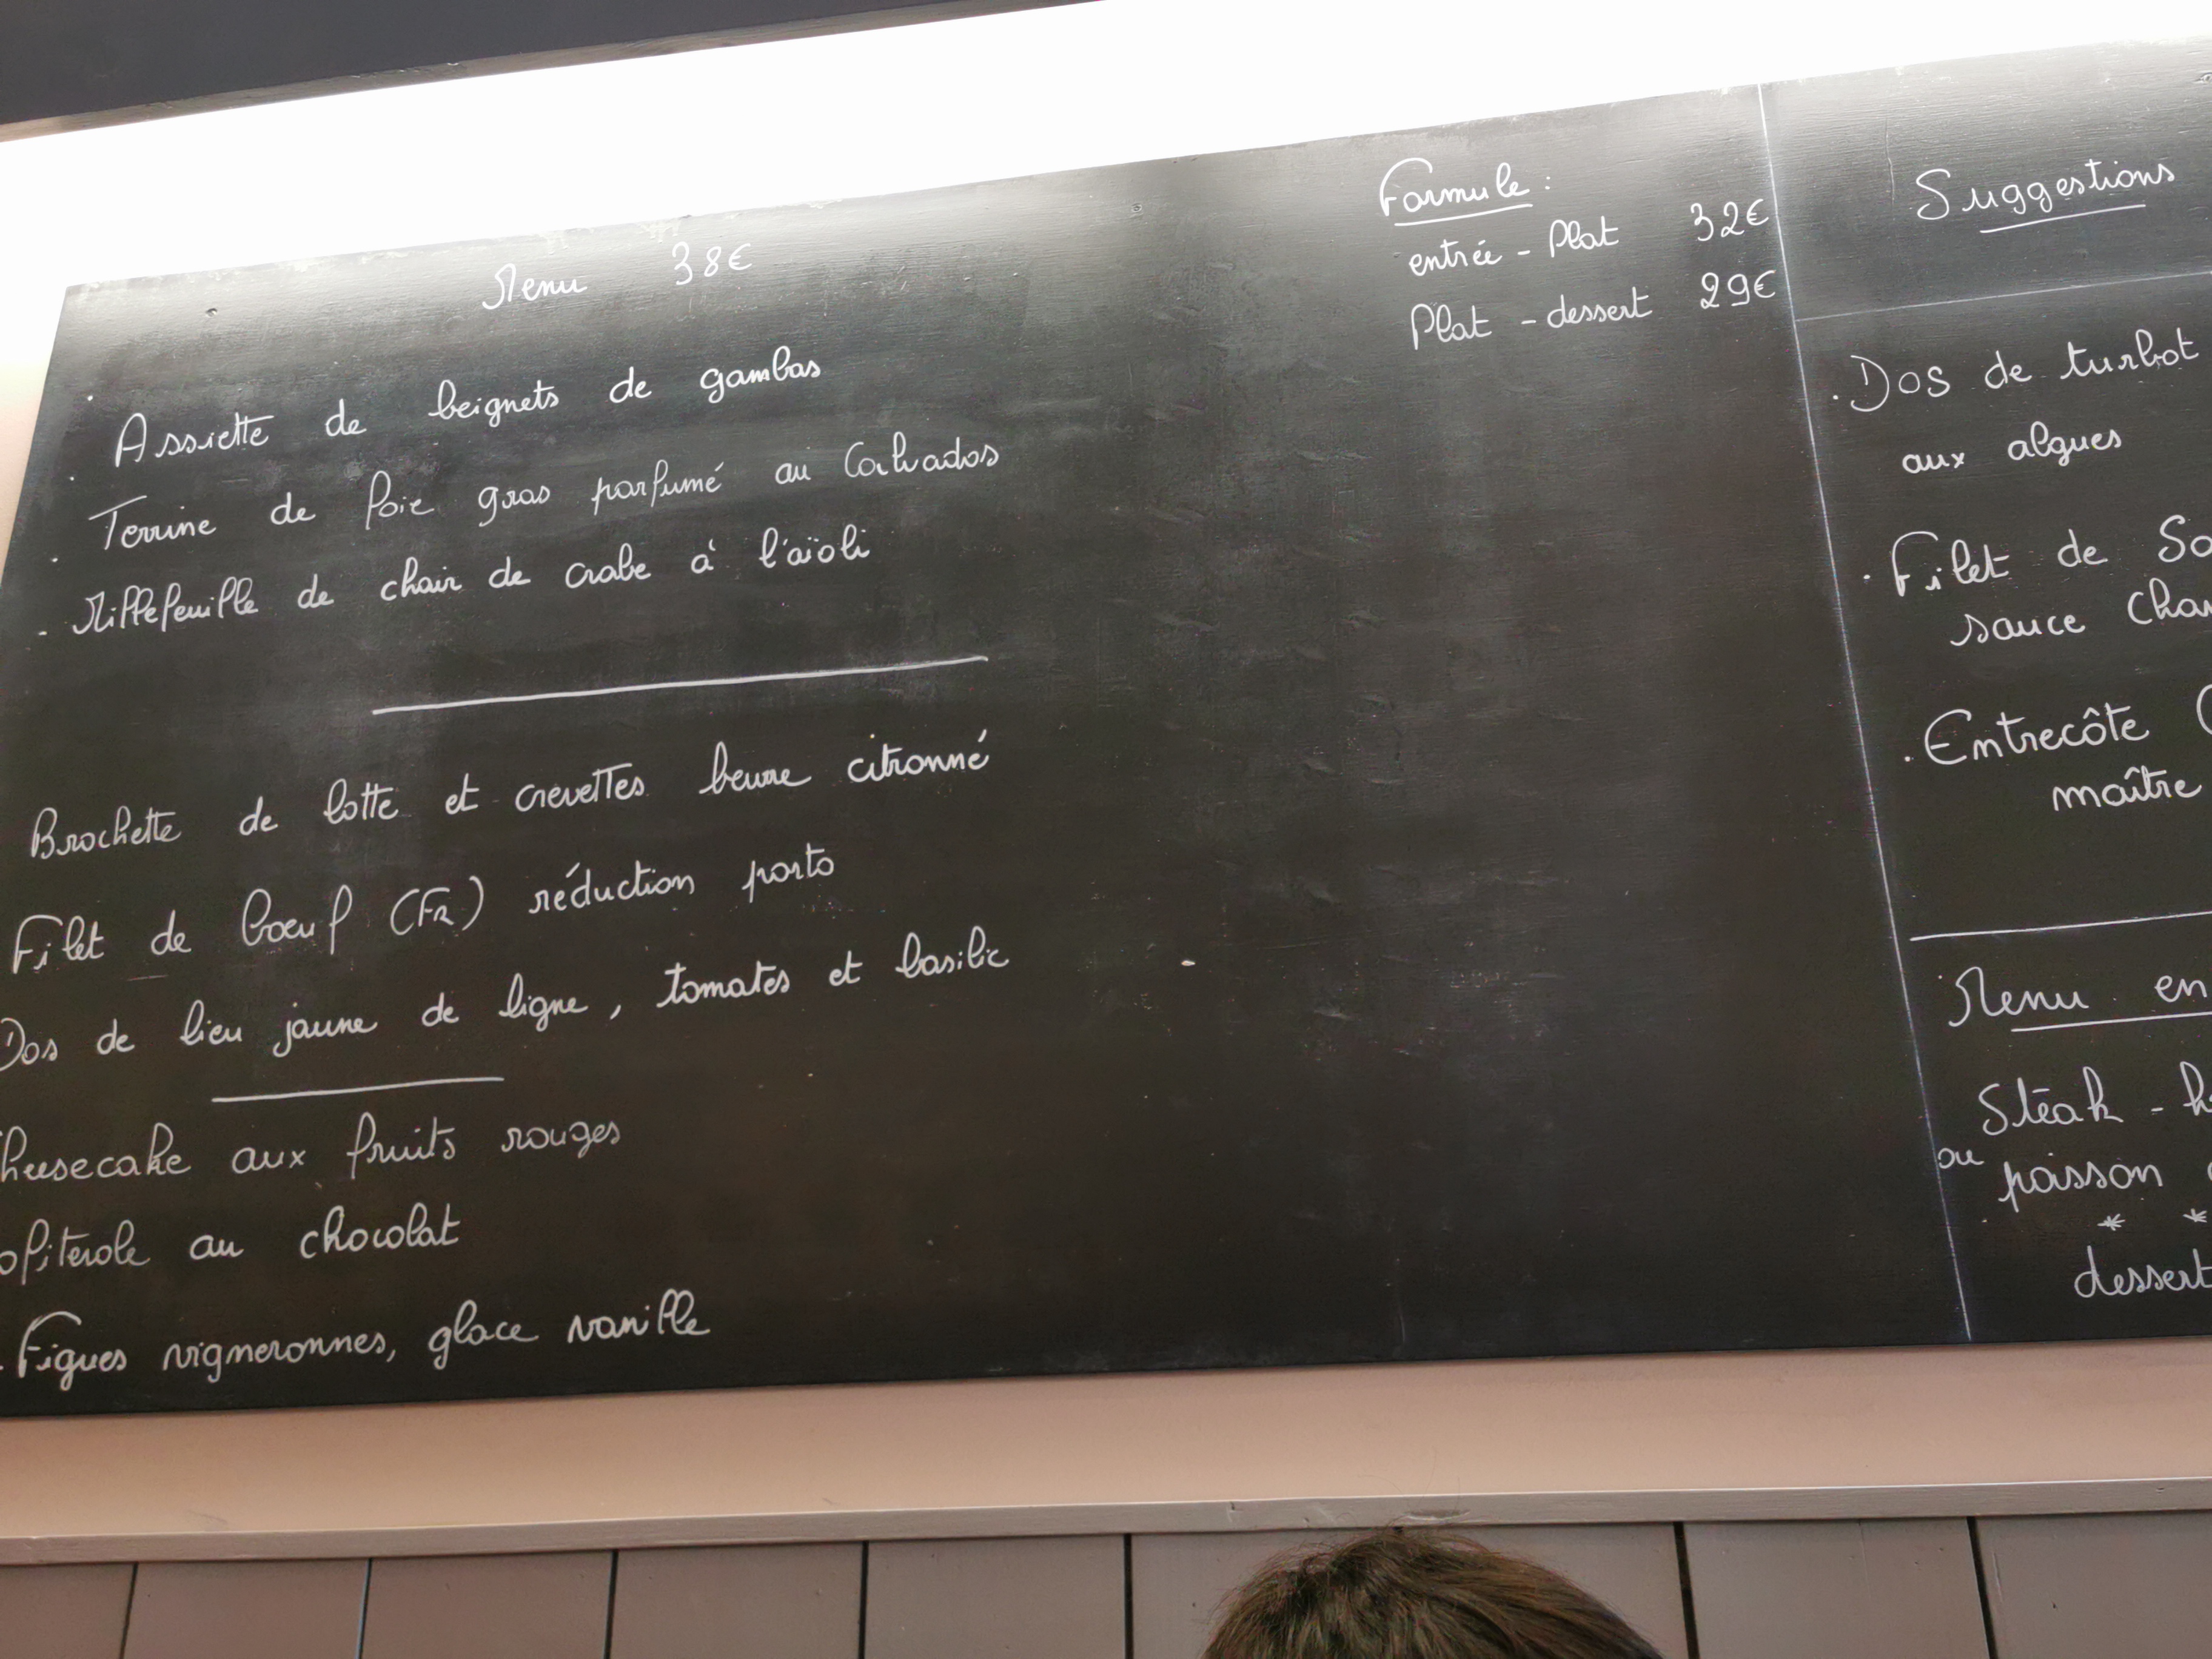 Menu 38€
. Assiette de beignets de gambas
. Terrine de foie gras parfumé au Calvados
. Millefeuille de chair de crabe à l'aïoli
Brochette de lotte et crevettes beurre citronné
Filet de boeuf (FR) réduction porto
Dos de lieu jaune de ligne, tomates et basilic
heesecake aux fruits rouges
ofiterole au chocolat
. Figues vigneronnes, glace vanille
Formule :
entrée - Plat 32€
Plat - dessert 29€
Suggestions
. Dos de turbot
aux algues
. Filet de
sauce
. Entrecôte
maître
Menu
Stéak -
ou poisson
* *
dessert